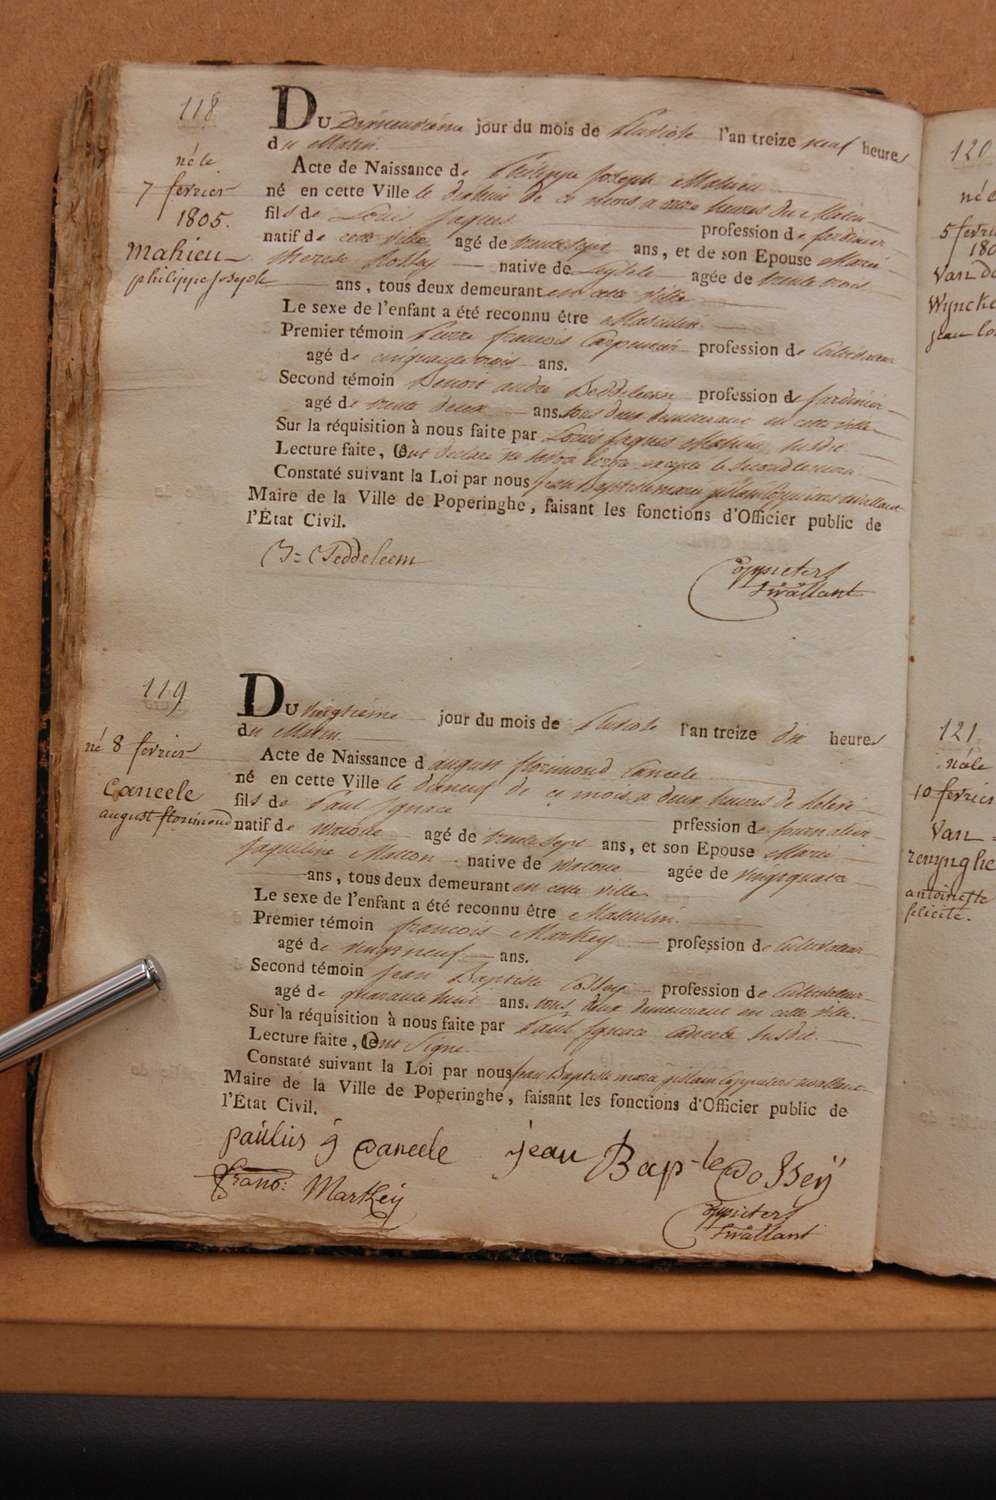 118
né le
7 fevrier
1805.
Mahieu
philippe joseph
DU Dixneuvième jour du mois de Pluviose l'an treize neuf heures
du Matin.
Acte de Naissance de Philippe Joseph Mahieu
né en cette Ville le dixhuit de ce mois a onze heures du Matin
fils de Louis Jaques profession de Jardinier
natif de cette ville agé de trente sept ans, et de son Epouse Marie
Therese native de agée de trente trois
ans, tous deux demeurant en cette ville
Le sexe de l'enfant a été reconnu être Masculin.
Premier témoin Pierre francois Carpentier profession de Cultivateur
agé de cinquante trois ans.
Second témoin Benoit andre Deddeleem profession de Jardinier
agé de trente deux ans. tous deux demeurant en cette ville
Sur la réquisition à nous faite par Louis Jaques Mahieu susdit
Lecture faite, Ont declaré ne savoir Ecrire excepté le second temoin
Constaté suivant la Loi par nous Jean Baptiste marie
Maire de la Ville de Poperinghe, faisant les fonctions d'Officier public de
l'État Civil.
Deddeleem
Coppieters
t'wallant
119
né 8 fevrier
Cancele
august florimond
DU vingtième jour du mois de Pluviose l'an treize dix heures
du Matin.
Acte de Naissance d august florimond Cancele
né en cette Ville le dixneuf de ce mois a deux heures de
fils de Paul Ignace prfession de journalier
natif de watoue agé de trente sept ans, et son Epouse Marie
Jaqueline Matton native de watoue agée de vingtquatre
ans, tous deux demeurant en cette ville
Le sexe de l'enfant a été reconnu être Masculin.
Premier témoin francois Markey profession de Cultivateur
agé de vingtneuf ans.
Second témoin Jean Baptiste Cossey profession de Cultivateur
agé de quarante huit ans. tous deux demeurant en cette ville.
Sur la réquisition à nous faite par Paul Ignace Cancele susdit
Lecture faite, Ont Signé.
Constaté suivant la Loi par nous Jean Baptiste marie
Maire de la Ville de Poperinghe, faisant les fonctions d'Officier public de
l'État Civil.
paülus Cancele jean Bap-te Cosseÿ
frans: Markeÿ
Coppieters
t'wallant
120
né l
5 fevri
180
Van d
Wyncke
jean lo
121
né le
10 fevrier
Van =
renynghe
antoinette
felicité.